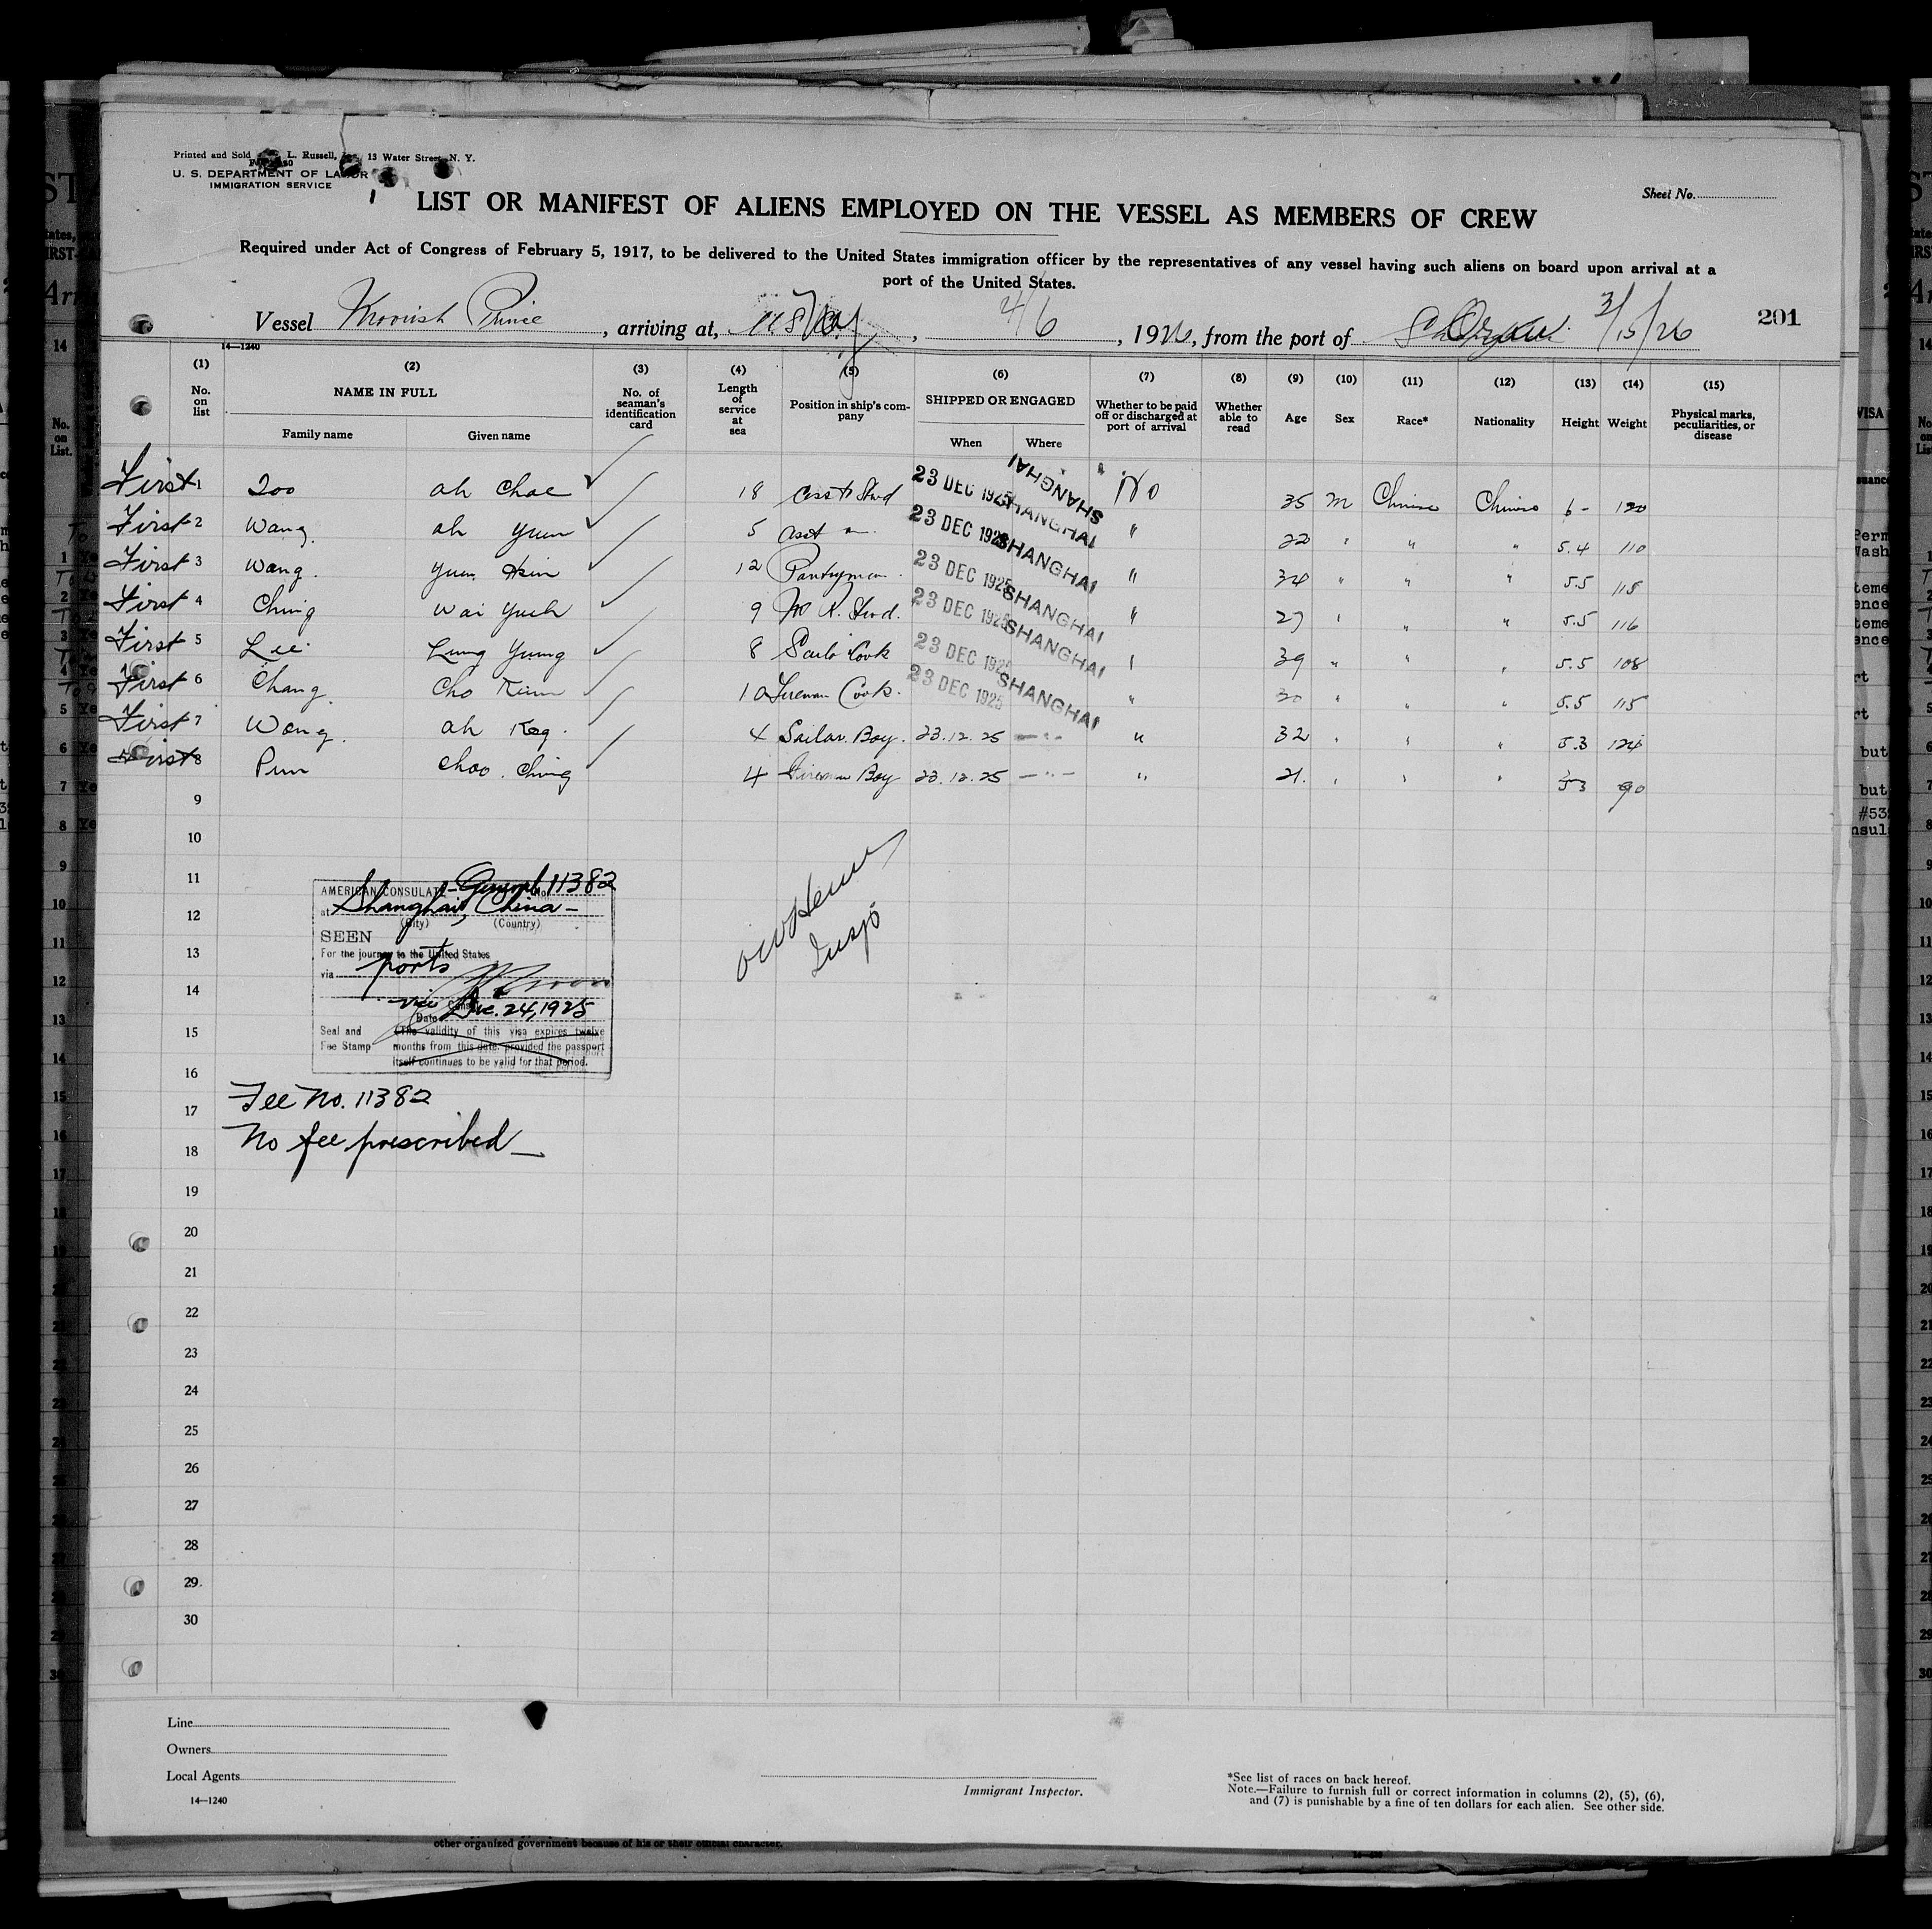 Printed and Sold L. Russell, 13 Water Street, N. Y.
U. S. DEPARTMENT OF LABOR
IMMIGRATION SERVICE
Sheet No.
LIST OR MANIFEST OF ALIENS EMPLOYED ON THE VESSEL AS MEMBERS OF CREW
Required under Act of Congress of February 5, 1917, to be delivered to the United States immigration officer by the representatives of any vessel having such aliens on board upon arrival at a
port of the United States.
201
Vessel Moorish Prince, arriving at, 4/6, 1926, from the port of 3/15/26
14—1240
(1) (2) (3) (4) (5) (6) (7) (8) (9) (10) (11) (12) (13) (14) (15)
No. on list
NAME IN FULL
Family name Given name
No. of seaman's identification card
Length of service at sea
Position in ship's company
SHIPPED OR ENGAGED
When Where
Whether to be paid off or discharged at port of arrival
Whether able to read
Age
Sex
Race*
Nationality
Height
Weight
Physical marks, peculiarities, or disease
First 1 Zoo ah Chae 18 Asst Stwd 23 DEC 1925 SHANGHAI No 35 M Chinese Chinese 6 - 120
First 2 Wang ah Yuen 5 Asst " 23 DEC 1925 SHANGHAI " 22 " " " 5.4 110
First 3 Wang Yuen Hsin 12 Pantryman 23 DEC 1925 SHANGHAI " 34 " " " 5.5 115
First 4 Ching Wai Yueh 9 M R. Stwd. 23 DEC 1925 SHANGHAI " 27 " " " 5.5 116
First 5 Lee Lung Yung 8 Sailo Cook 23 DEC 1925 SHANGHAI " 39 " " " 5.5 108
First 6 Chang Cho 10 Fireman Cook 23 DEC 1925 SHANGHAI " 30 " " " 5.5 115
First 7 Wong ah 4 Sailor Boy 23.12.25 — " — " 32 " " " 5.3 124
First 8 Pun Choo Ching 4 Fireman Boy 23.12.25 — " — " 21 " " " 5 3 90
9
10
11
12
13
14
15
16
17
18
19
20
21
22
23
24
25
26
27
28
29
30
AMERICAN CONSULATE-General No. 11382
at Shanghai, China -
(City) (Country)
SEEN
For the journey to the United States
via ports
vice Consul
Date Dec. 24, 1925
Seal and Fee Stamp
(The validity of this visa expires twelve
months from this date, provided the passport
itself continues to be valid for that period.
Fee No. 11382
No fee prescribed—
Line
Owners
Local Agents
14—1240
Immigrant Inspector.
*See list of races on back hereof.
Note.—Failure to furnish full or correct information in columns (2), (5), (6),
and (7) is punishable by a fine of ten dollars for each alien. See other side.
other organized government because of his or their official character.